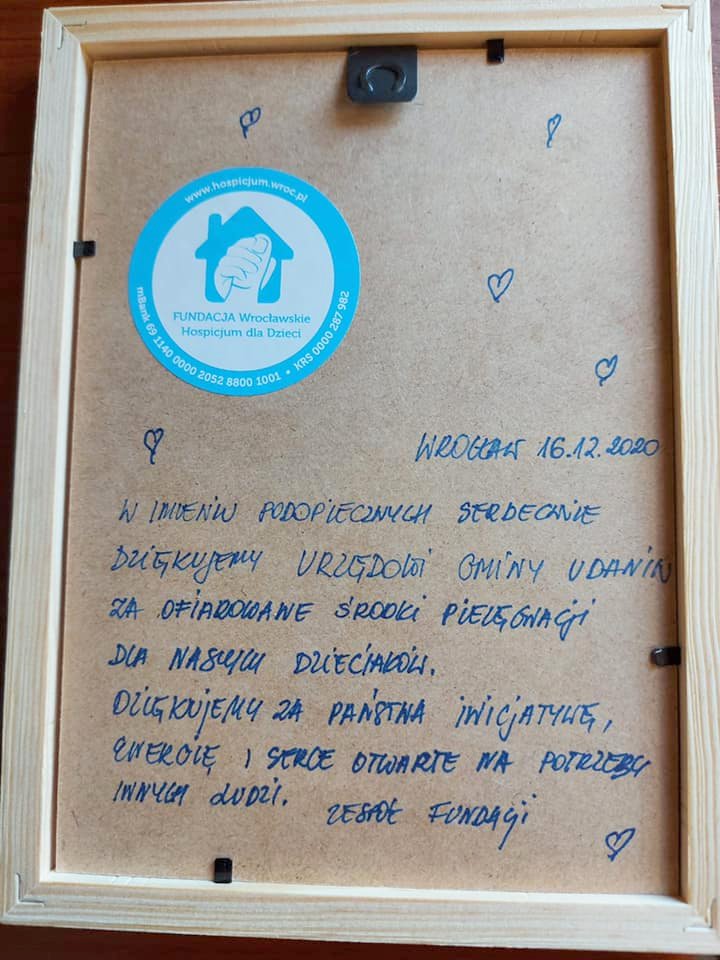 www.hospicjum.wroc.pl
FUNDACJA Wrocławskie
Hospicjum dla Dzieci
mBank 69 1140 0000 2052 8800 1001 • KRS 0000 287 982
WROCŁAW 16.12.2020
W IMIENIU PODOPIECZNYCH SERDECZNIE
DZIĘKUJEMY URZĘDOWI GMINY UDANIN
ZA OFIAROWANE ŚRODKI PIELĘGNACJI
DLA NASZYCH DZIECIAKÓW.
DZIĘKUJEMY ZA PAŃSTWA INICJATYWĘ,
ENERGIĘ I SERCE OTWARTE NA POTRZEBY
INNYCH LUDZI.
ZESPÓŁ FUNDACJI